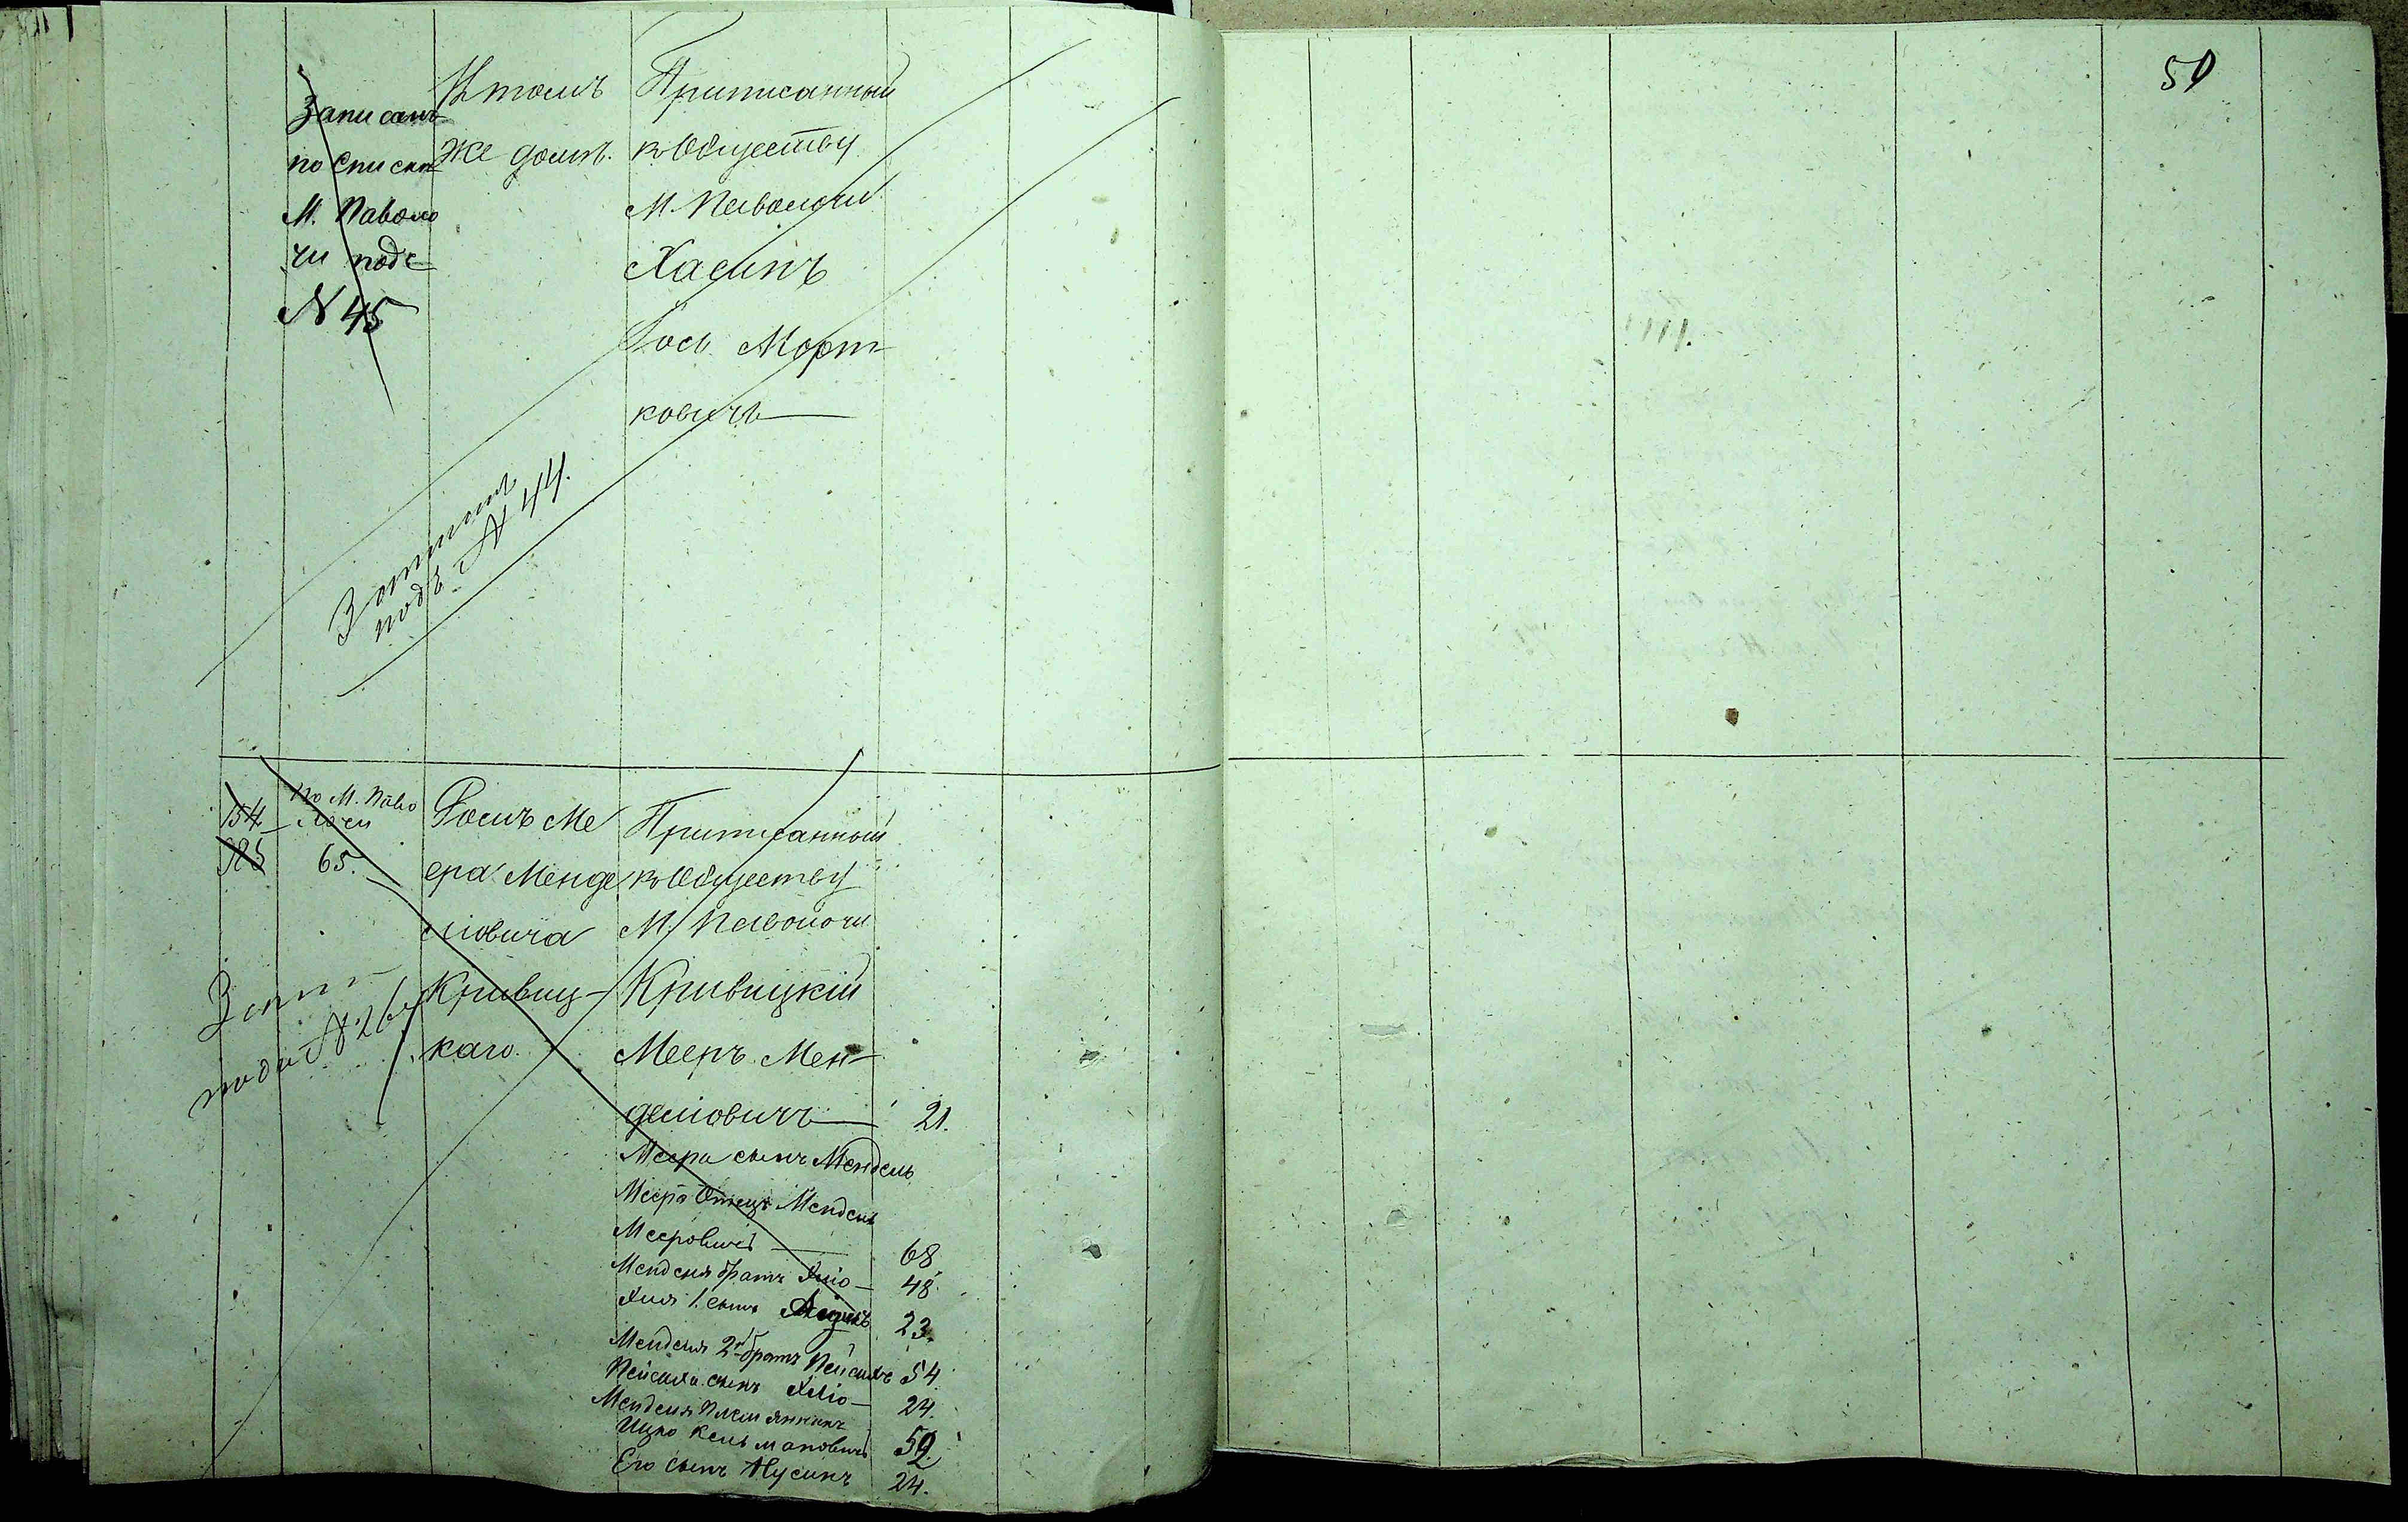 Записанъ
по списку
М. Паволо
чи подъ
N 45
Въ томъ
же домѣ.
Приписанный
къ Обществу
М. Паволочи
Хасинъ
Іось Морт-
ковичъ
подъ N 44.
154
По М. Паво
лочи
65.
Домъ Ме
ера Менде
ліовича
Кривиц-
каго.
подъ N
Приписанный
къ Обществу
М. Паволочи
Кривицкій
Мееръ Мен-
деліовичъ 21.
Меера сынъ Мендель
Меера Отецъ Мендель
Мееровичъ 68
Менделя братъ 48
1. сынъ 23.
Менделя 2й братъ Пейсахъ 54
Пейсаха сынъ 24.
Менделя племянникъ
Ицко Кельмановичъ 59
Его сынъ Нусинъ 24.
50